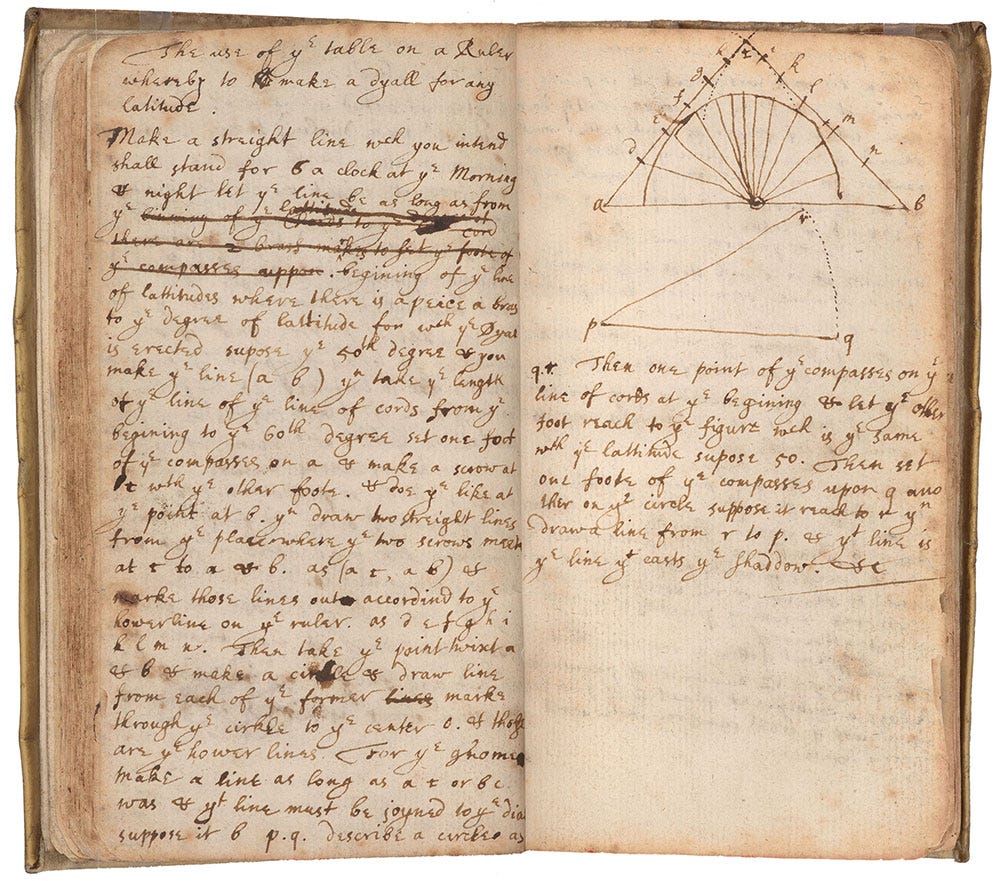 The use of yᵉ table on a Ruler
whereby to make a dyall for any
latitude.
Make a streight line wch you intend
shall stand for 6 a clock at yᵉ Morning
& night let yᵉ line be as long as from
yᵉ begining of yᵉ lattitude cords to yᵉ cord
there are 2 brass markes to set yᵉ foote of
yᵉ compasses uppon. begining of yᵉ line
of lattitudes where there is a peice a brass
to yᵉ degree of lattitude for wch yᵉ Dyal
is erected supose yᵉ 50th degree & you
make yᵉ line (a b) yⁿ take yᵉ length
of yᵉ line of yᵉ line of cords from yᵉ
begining to yᵉ 60th degree set one foot
of yᵉ compasses on a & make a scrow at
c wth yᵉ other foote. & doe yᵉ like at
yᵉ point at b. yⁿ draw two streight lines
from yᵉ place where yᵉ two scrows meete
at c to a & b. as (a c, a b) &
marke those lines out accordind to yᵉ
howerline on yᵉ ruler as d e f g h i
k l m n. Then take yᵉ point twixt a
& b & make a cirkle & draw line
from each of yᵉ former lines marke
through yᵉ cirkle to yᵉ center o. & those
are yᵉ hower lines. For yᵉ ghomen
make a line as long as a c or b c
was & yᵗ line must be joyned to yᵉ dial
suppose it b p.q. describe a circkle as
d e f g h c i k l m n
a o b
r
p q
q.r. Then one point of yᵉ compasses on yᵉ
line of cords at yᵉ begining & let yᵉ other
foot reach to yᵉ figure wch is yᵉ same
wth yᵉ lattitude supose 50. Then set
one foote of yᵉ compasses upon q ano
ther on yᵉ circle suppose it reach to r yⁿ
draw a line from r to p. & yᵗ line is
yᵉ line yᵗ casts yᵉ shaddow. &c